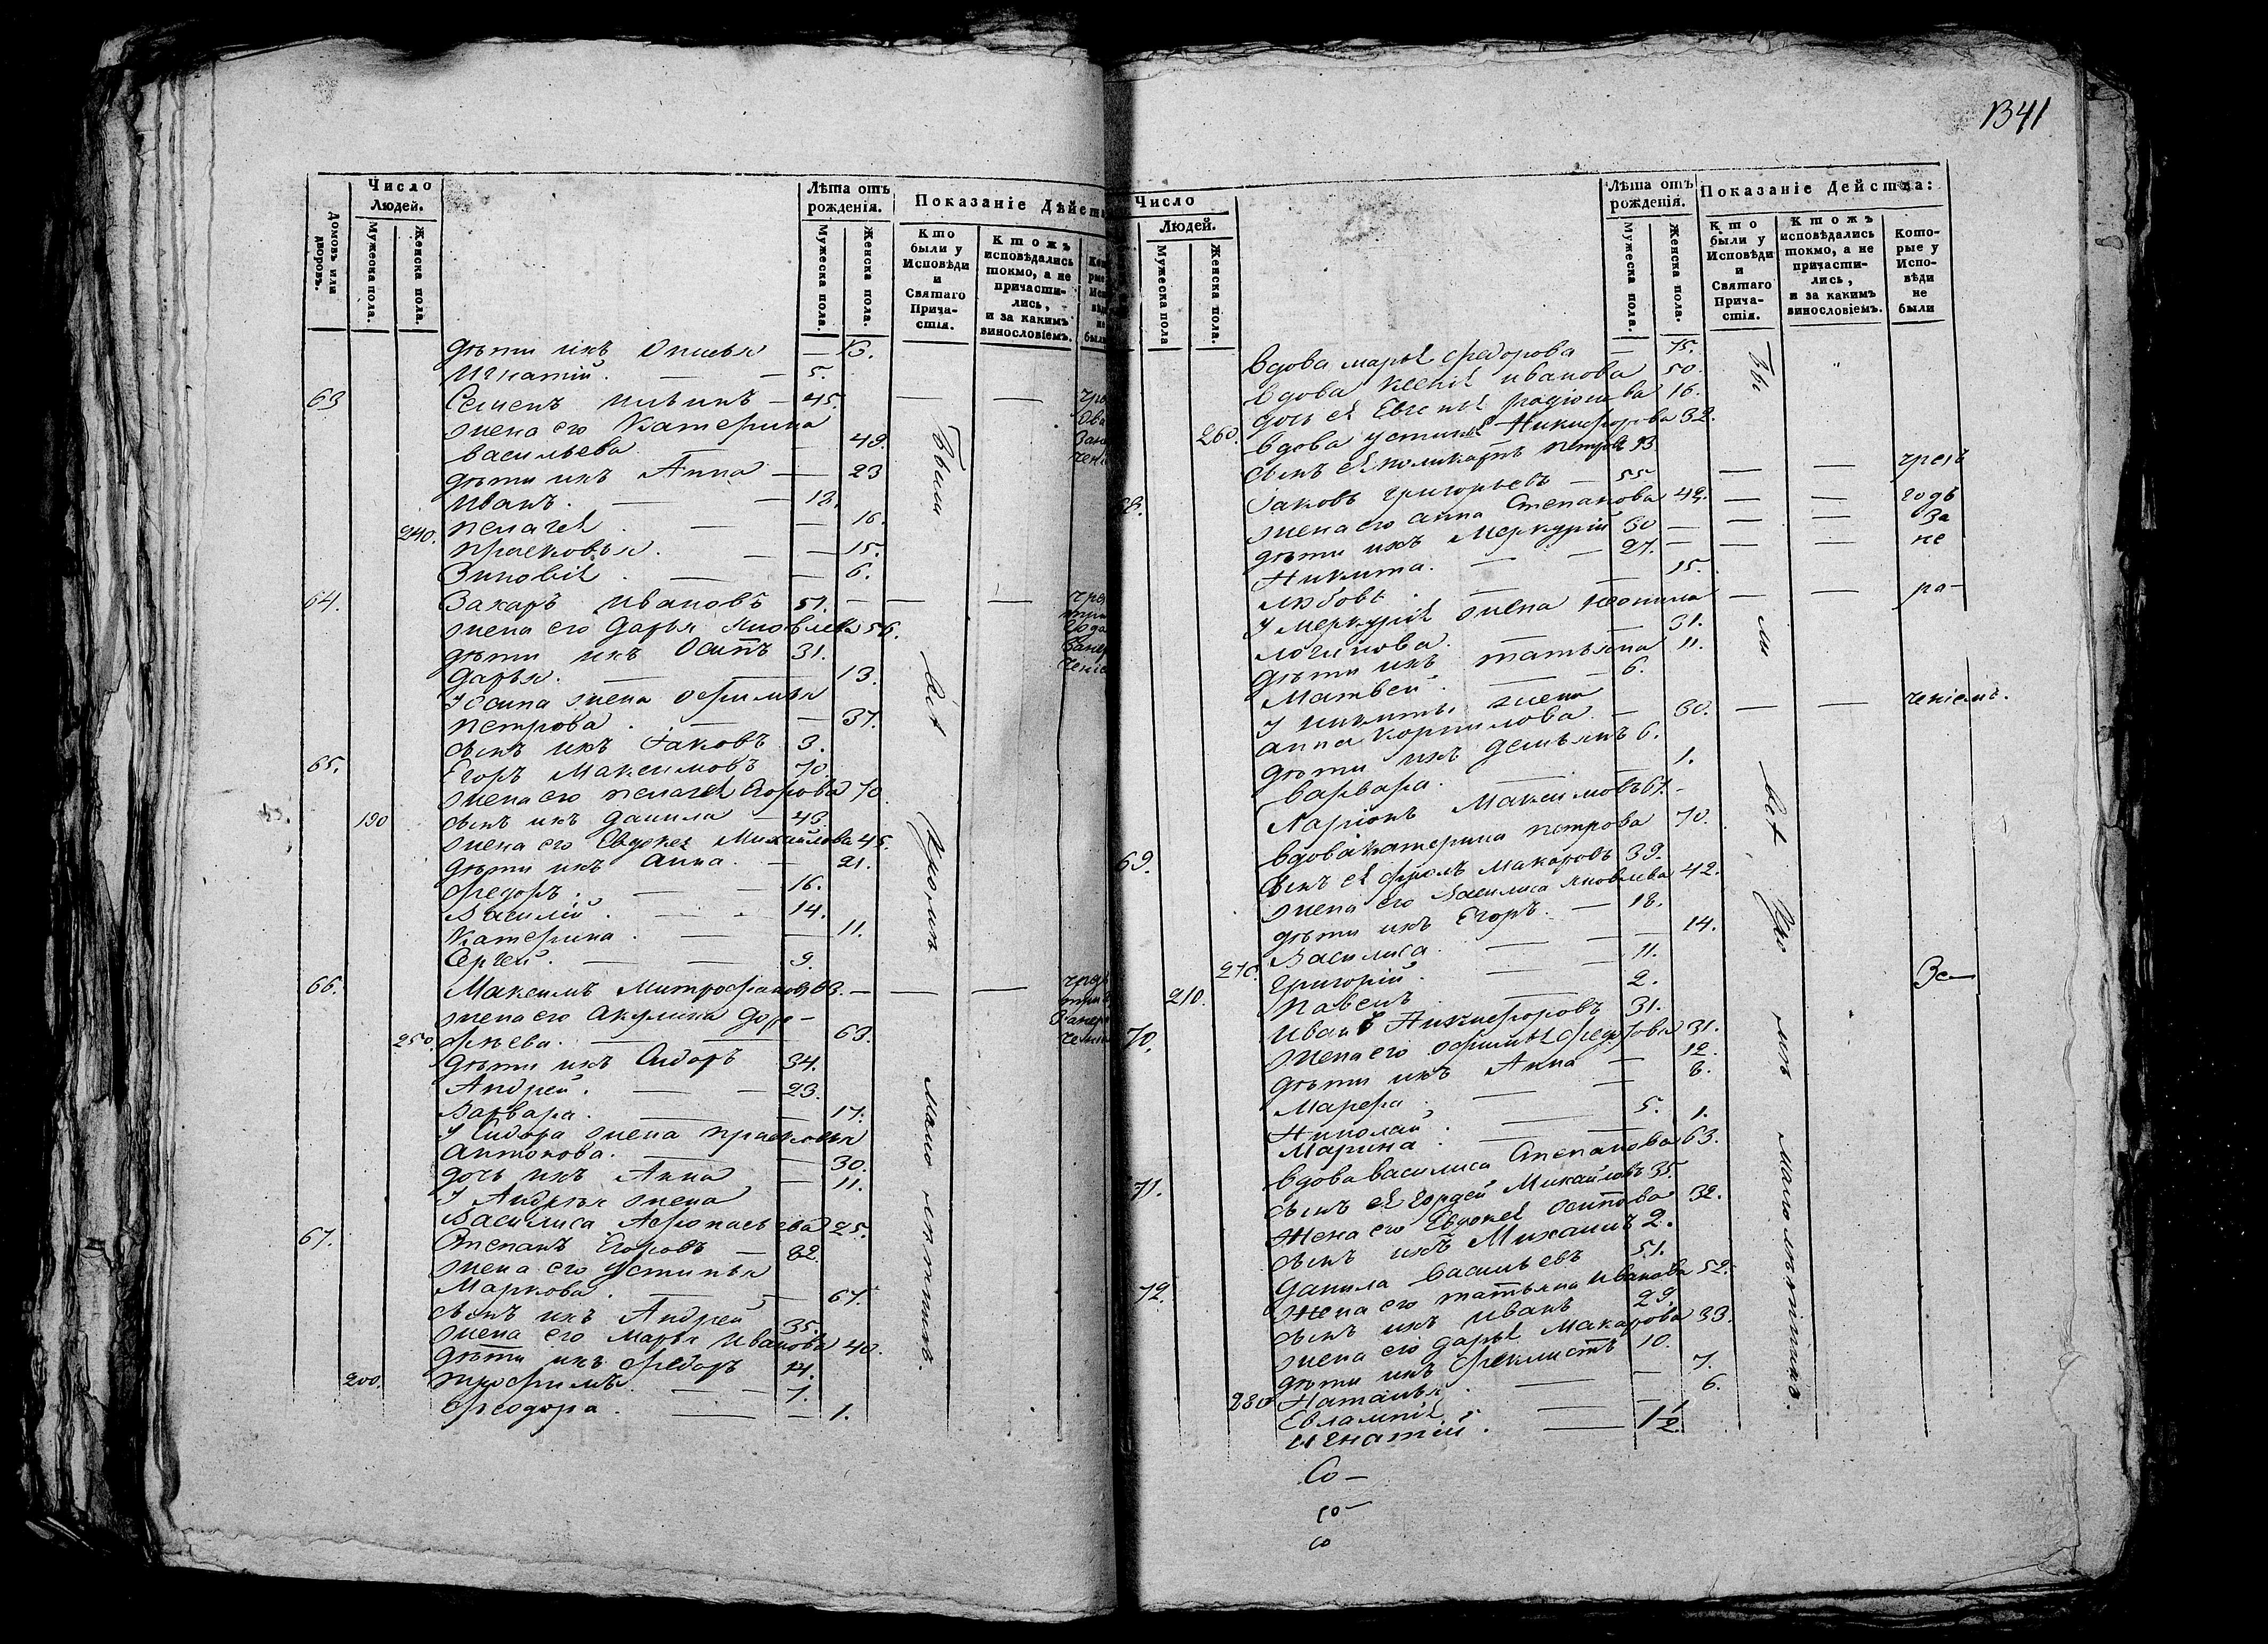 1341
Число Людей.
Лѣта отъ рожденія.
Показаніе Дѣйст
Домовъ или дворовъ.
Мужеска пола.
Женска пола.
Мужеска пола.
Женска пола.
Кто были у Исповѣди и Святаго Прича-стія.
Ктожъ исповѣдались токмо, а не причасти-лись, и за какимъ винословіемъ.
дѣти ихъ — 13.
Игнатій. — — 5.
63 Семенъ — 45. — —
жена его Катерина
васильева — 49.
дѣти ихъ Анна — 23
Иванъ. — — 18.
240. пелагея — — 16.
прасковья. — — 15.
Зиновія. — — 6.
64. Захаръ Ивановъ 51. — — —
жена его Дарья Яковлева 56.
дѣти ихъ Осипъ 31.
Дарья. — — 13.
У Осипа жена Офимья
петрова. — — 37.
сынъ ихъ Іаковъ 3.
65. Егоръ Максимовъ 70
жена его пелагея Егорова 70.
190 сынъ ихъ данила — 43
жена его Евдокея Михайлова 45.
дѣти ихъ анна. — 21.
Федоръ. — — 16.
Василій. — — 14.
Катерина. — — 11.
Сергей. — — 9.
66. Максимъ Митрофановъ 63. — — —
жена его Акулина Доро-
250. фѣева. — — 63.
дѣти ихъ Сидоръ 34.
Андрей. — — 23.
Варвара. — — 17.
У Сидора жена прасковья
Антонова. — — 30.
дочь ихъ Анна — 11.
У Андрея жена
Василиса Афонасьева 25.
67. Степанъ Егоровъ — 82.
жена его Устинья
Маркова. — — 67.
сынъ ихъ Андрей 35.
жена его Марья Иванова 40.
дѣти ихъ Федоръ 14.
200. трофимъ. — — 7.
Феодора. — — 1.
Были
всѣ
кромѣ
малолѣтнихъ.
Число Людей.
Лѣта отъ рожденія.
Показаніе Действа:
Мужеска пола
Женска пола.
Мужеска пола.
Женска пола.
Кто были у Исповѣди и Святаго Прича-стія.
Ктожъ исповѣдались токмо, а не причасти-лись, и за какимъ винословіемъ.
Кото-рые у Испо-вѣди не были
Вдова марья Федорова — 75.
Вдова Ксенія Иванова 50.
дочь ея Евгенія 16.
260. вдова устинья Никифорова 32.
сынъ ея поликарпъ петровъ 13.
68. Іаковъ григорьевъ — 55 — — чрезъ
жена его анна Степанова 42. — — годъ
дѣти ихъ Меркурій 30 — — — За
Никита. — — 27. — — — не
любовь. — — 15.
У Меркурія жена — — ра-
логинова. — — 31.
дѣти ихъ татьяна 11.
Матвей. — — 6.
У Никиты жена
анна Корнилова. — 30. — — ченіемъ.
дѣти ихъ демьянъ 6.
варвара. — — 1.
Ларіонъ Максимовъ 67. —
69. вдова катерина петрова 70.
сынъ ея фролъ Макаровъ 39.
жена его Василиса Яковлева 42.
дѣти ихъ Егоръ. — 18.
270. Василиса. — — 14.
210. григорій. — — 11.
Павелъ — — 2.
70. Иванъ Никифоровъ 31.
жена его Офимья 31.
дѣти ихъ Анна — 12.
Марфа. — — 8.
Николай. — — 5.
Марина. — — 1.
71. вдова василиса Степанова 63.
сынъ ея гордей Михайловъ 35.
Жена его Евдокея Осипова 32.
сынъ ихъ Михаилъ 2.
72. данила васильевъ 51.
Жена его татьяна Иванова 52.
сынъ ихъ Иванъ 29.
жена его дарья Макарова 33.
дѣти ихъ феклистъ 10.
280 Наталья. — — 7.
Евлампія. — — 6.
Игнатій. — — 1 1/2
Бы
ли
всѣ
кро
мѣ
малолѣтнихъ.
Со-
со-
со